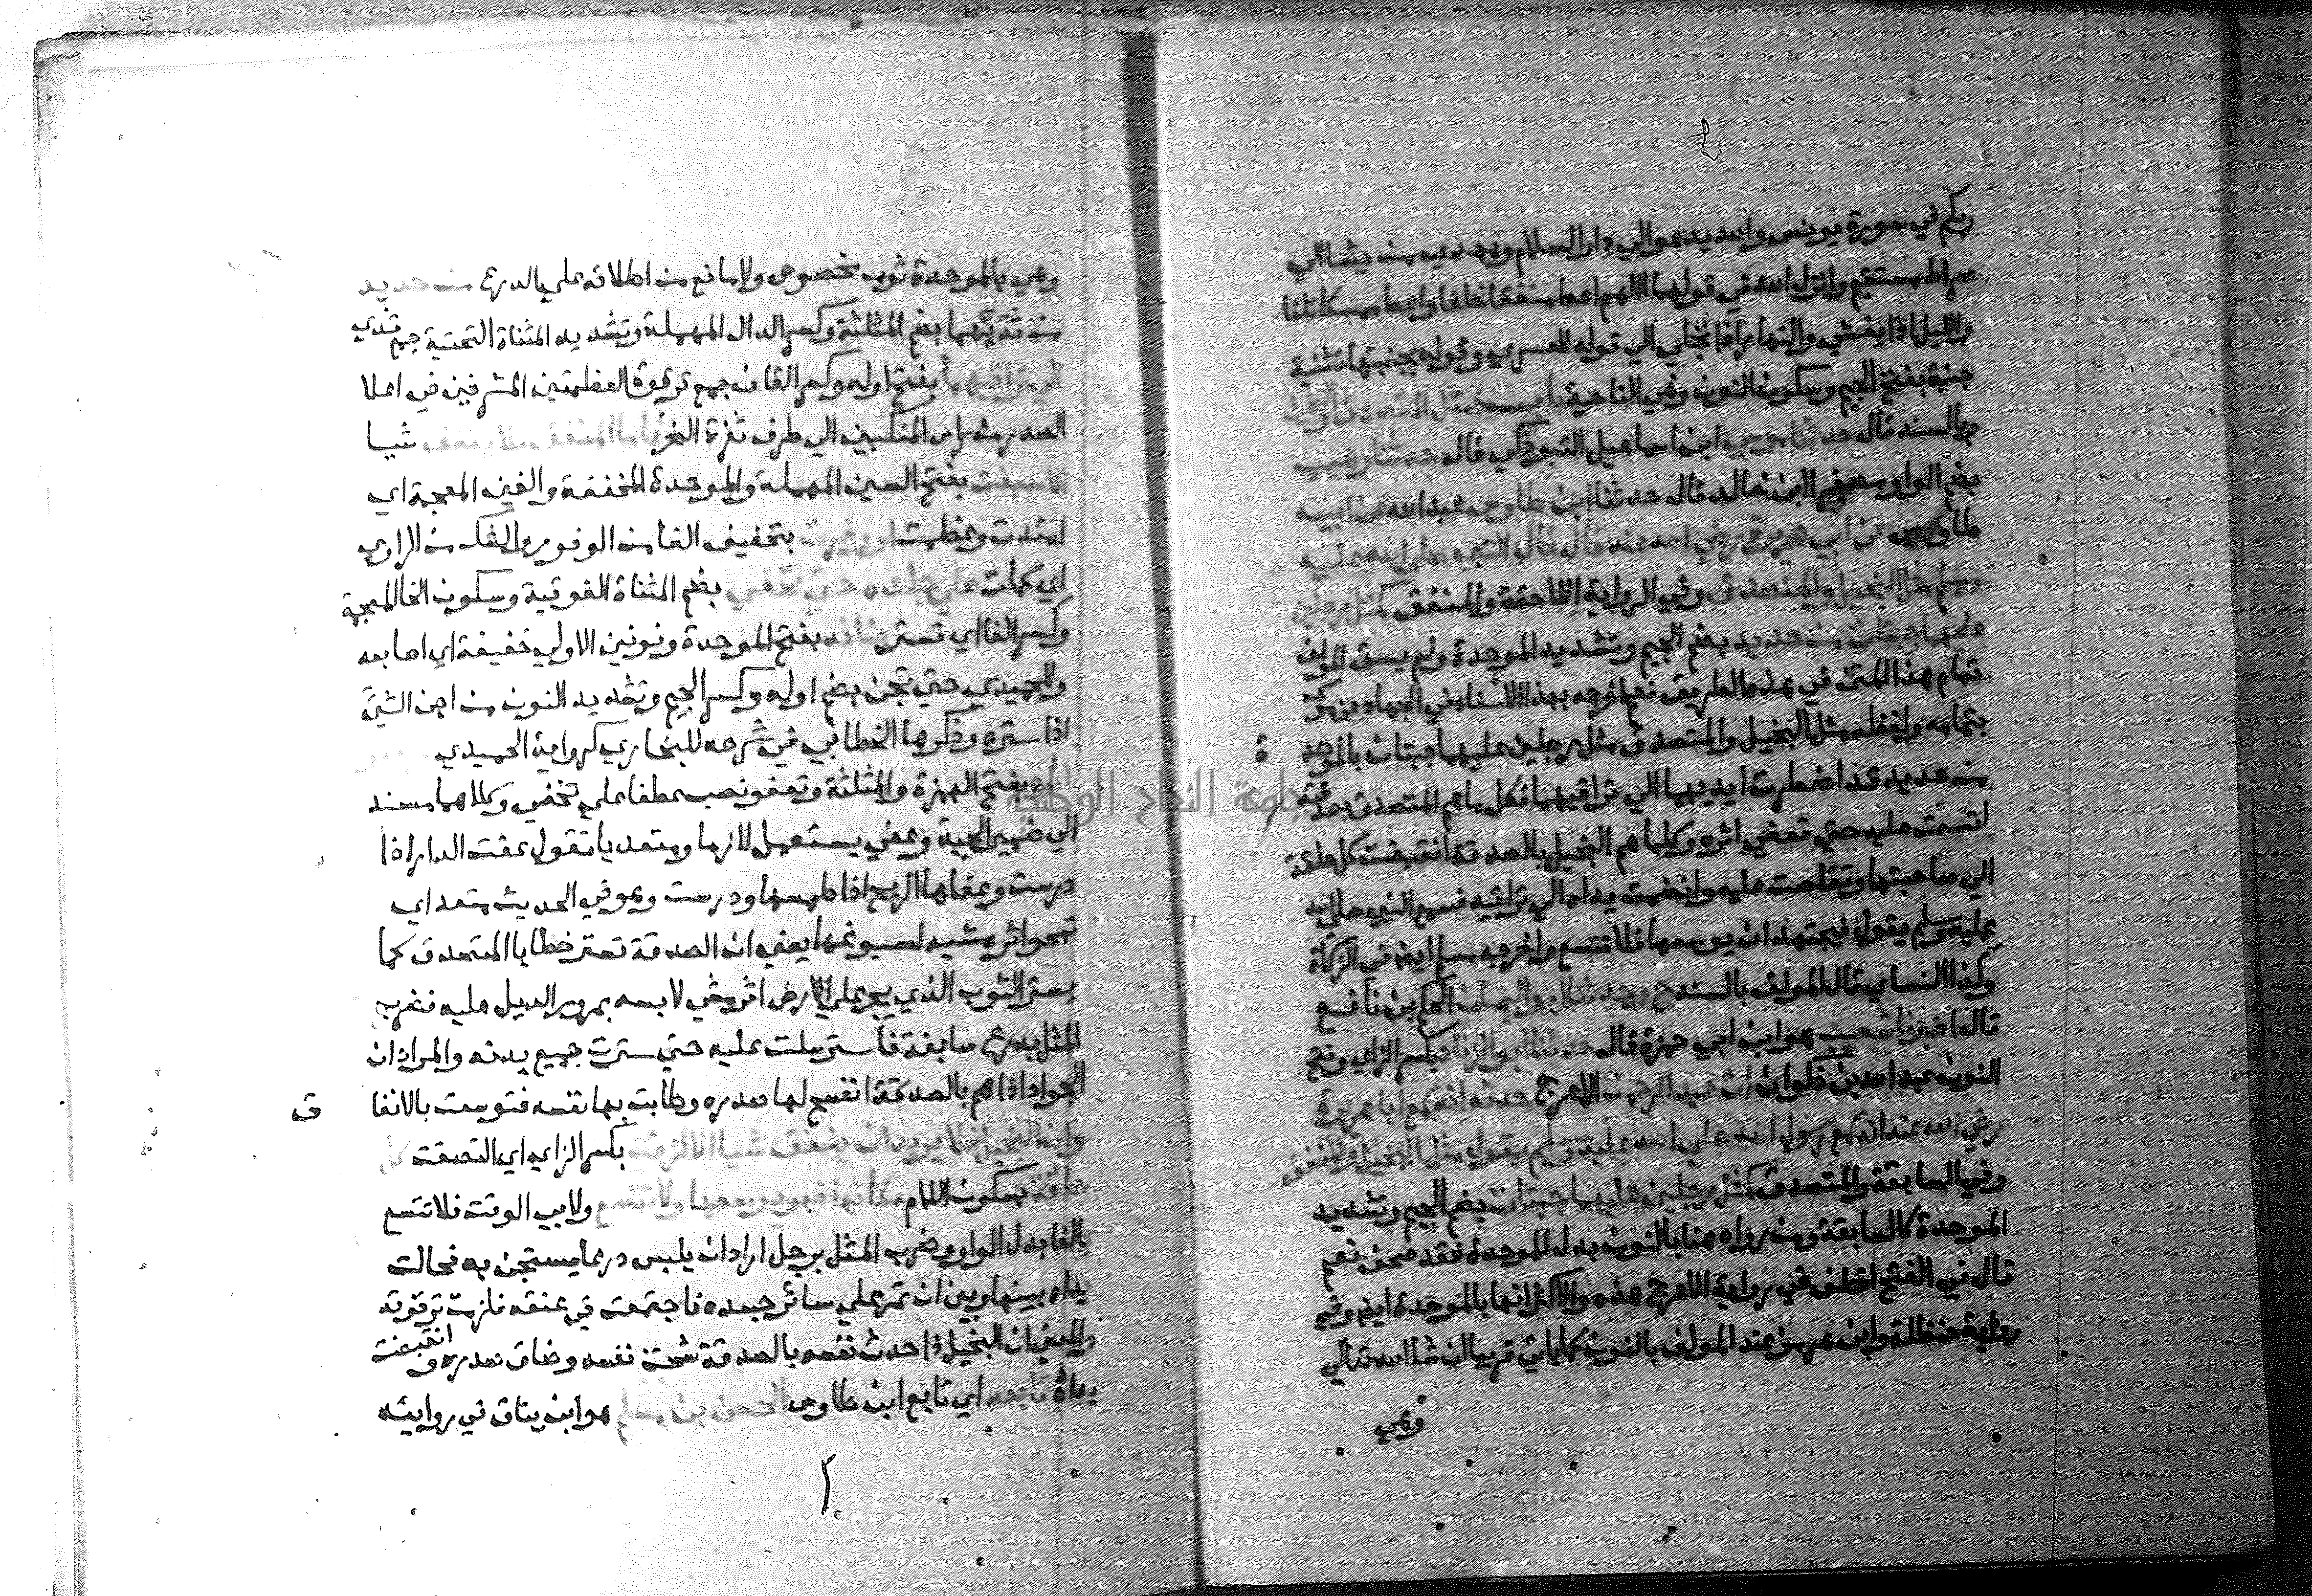 ربكم في سورة يونس والله يدعوا الي دار السلام ويهدي من يشا الي
صراط مستقيم وانزل الله في قولهما اللهم اعط منفقا خلفا واعط ممسكا تلفا
والليل اذا يغشي والنهار اذا تجلي الي قوله للعسري وقوله بجنبتها تثنية
جنبة بفتح الجيم وسكون النون وهي الناحية باب مثل المتصدق والبخيل
وبالسند قال حدثنا موسي ابن اسماعيل التبوذكي قال حدثنا وهيب
بضم الواو مصغر ابن خالد قال حدثنا ابن طاوس عبد الله عن ابيه
طاوس عن ابي هريرة رضي الله عنه قال قال النبي صلي الله عليه
وسلم مثل البخيل والمتصدق وفي الرواية اللاحقة والمنفق كمثل رجلين
عليهما جبتان من حديد بضم الجيم وتشديد الموحدة ولم يسق المولف
تمام هذا المتن في هذه الطريق نعم اخرجه بهذا الاسناد في الجهاد عن موسي
بتمامه ولفظه مثل البخيل والمتصدق مثل رجلين عليهما جبتان بالموحد ة
من حديد قد اضطرت ايديهما الي تراقيهما فكل ما هم المتصدق بصدقته
اتسعت عليه حتي تعفي اثره وكلما هم البخيل بالصدقة انقبضت كل حلقة
الي صاحبتها وتقلصت عليه وانضمت يداه الي تراقيه فسمع النبي صلي الله
عليه وسلم يقول فيجتهد ان يوسعها فلا تتسع واخرجه مسلم ايض في الزكاة
وكذا النساي قال المولف بالسند ح وحدثنا ابو اليمان الحكم بن نافع
قال اخبرنا شعيب هو ابن ابي حمزة قال حدثنا ابو الزناد بكسر الزاي وفتح
النون عبد الله بن ذكوان ان عبد الرحمن الاعرج حدثه انه سمع ابا هريرة
رضي الله عنه انه سمع رسول الله صلي الله عليه وسلم يقول مثل البخيل والمنفق
وفي السابقة والمتصدق كمثل رجلين عليهما جبتان بضم الجيم وتشديد
الموحدة كالسابقة ومن رواه هنا بالنون بدل الموحدة فقد صحف نعم
قال في الفتح اختلف في رواية الاعرج هذه والاكثر انها بالموحدة ايض وفي
رواية حنظلة وابن هرمز عند المولف بالنون كما ياتي قريبا ان شا الله تعالي
وهي
وهي بالموحدة ثوب مخصوص ولا مانع من اطلاقه علي الدرع من حديد
من ثديهما بضم المثلثة وكسر الدال المهملة وتشديد المثناة التحتية جمع ثدي
الي تراقيهما بفتح اوله وكسر القاف جمع ترقوة العظمتين المشرفين في اعلا
الصدر من راس المنكبين الي طرف ثغرة النحر فاما المنفق فلا ينفق شيا
الا سبغت بفتح السين المهملة والموحدة المخففة والغين المعجمة اي
امتدت وعظمت او وفرت بتخفيف الفا من الوفور والشك من الراوي
اي كملت علي جلده حتي تخفي بضم المثناة الفوقية وسكون الخا المعجمة
وكسر الفا اي تستر بنانه بفتح الموحدة ونونين الاولي خفيفة اي اصابعه
وللحميدي حتي تجن بضم اوله وكسر الجيم وتشديد النون من اجن الشي
اذا ستره وذكرها الخطابي في شرحه للبخاري كرواية الحميدي
اثره بفتح الهمزة والمثلثة وتعفو نصب عطفا علي تخفي وكلاهما مسند
الي ضمير الجبة وعفي يستعمل لازما ومتعديا تقول عفت الدار اذا
درست وعفاها الريح اذا طمسها ودرست وهو في الحديث متعد اي
تمحوا اثر مشيه لسبوغها يعني ان الصدقة تستر خطايا المتصدق كما
يستر الثوب الذي يجر علي الارض اثر مشي لابسه بمرور الذيل عليه فضرب
المثل بدرع سابغة فاسترسلت عليه حتي سترت جميع بدنه والمراد ان
الجواد اذا هم بالصدقة انفسح لها صدره وطابت بها نفسه فتوسعت بالانفا ق
واما البخيل فلا يريد ان ينفق شيا الا لزقت بكسر الزاي اي التصقت كل
حلقة بسكون اللام مكانها فهو يوسعها ولا تتسع ولابي الوقت فلا تتسع
بالفا بدل الواو وضرب المثل برجل اراد ان يلبس درعا يستجن به فحالت
يداه بينها وبين ان تمر علي سائر جسده فاجتمعت في عنقه فلزمت ترقوته
والمعني ان البخيل اذا حدث نفسه بالصدقة شحت نفسه وضاق صدره وانقبضت
يداه تابعه اي تابع ابن طاوس الحسن بن مسلم هو ابن يناق في روايته
جامعة النجاح الوطنية